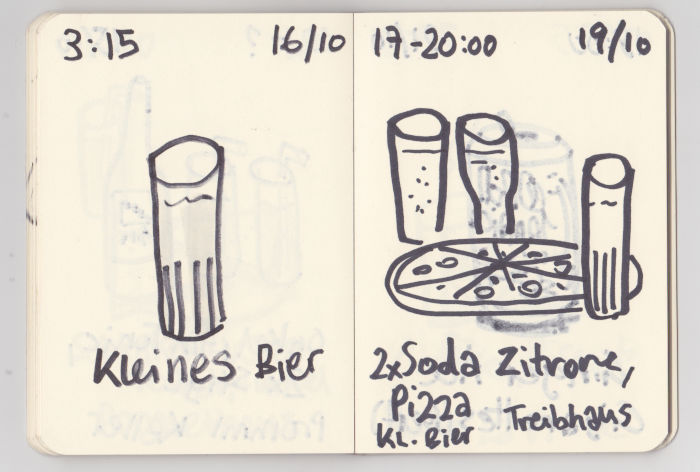 3:15 16/10
Kleines Bier
17-20:00 19/10
2xSoda Zitrone,
Pizza
Kl. Bier Treibhaus